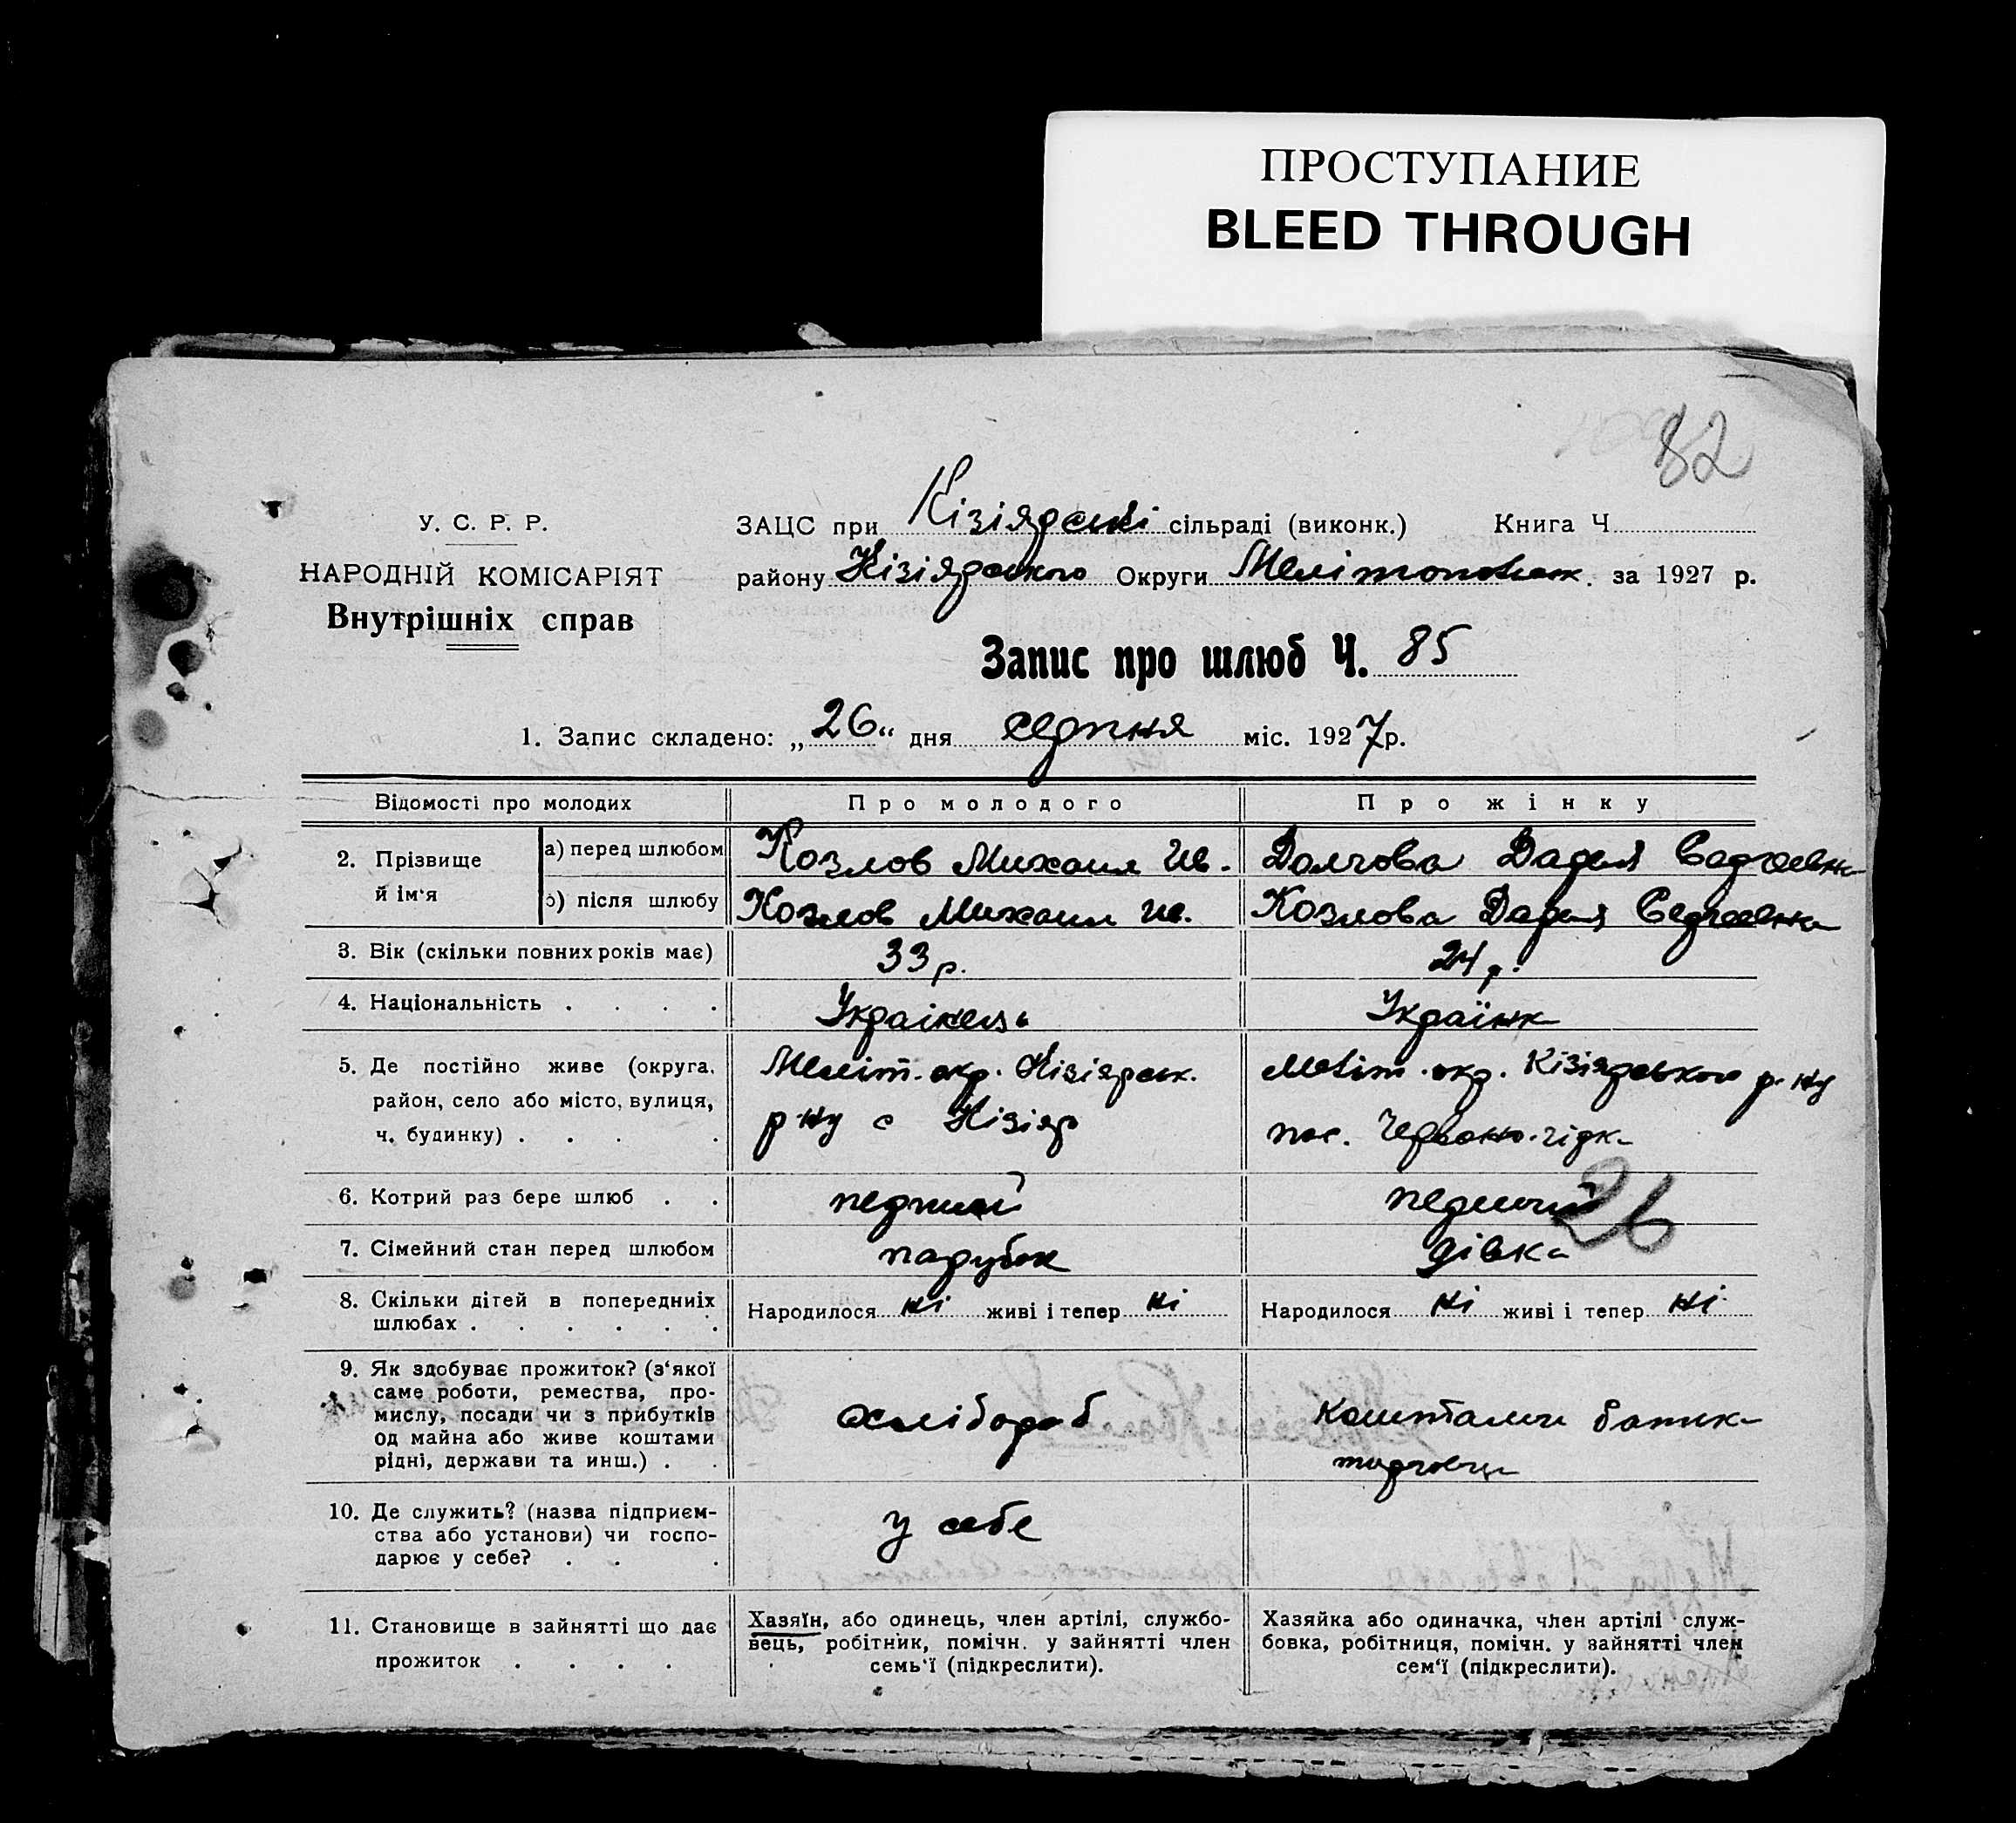 ПРОСТУПАНИЕ
BLEED THROUGH
82
У. С. Р. Р.
НАРОДНІЙ КОМІСАРІЯТ
Внутрішніх справ
ЗАЦС при Кізіярські сільраді (виконк.) Книга Ч.
району Кізіярського Округи Мелітопольськ. за 1927 р.
Запис про шлюб Ч. 85
1. Запис складено: „26“ дня серпня міс. 1927 р.
Відомості про молодих Про молодого Про жінку
2. Прізвище й ім‘я
а) перед шлюбом Козлов Михаил Ив. Долгова Дарья Сергеевна
б) після шлюбу Козлов Михаил Ив. Козлова Дарья Сергеевна
3. Вік (скільки повних років має) 33 р. 24 р.
4. Національність . . . . Украінець Українк
5. Де постійно живе (округа, Меліт. окр. Кізіярськ. Меліт. окр. Кізіярського р-ну
район, село або місто, вулиця, р-ну с Кізіяр пос. Червоно-гірк
ч. будинку) . . . .
6. Котрий раз бере шлюб . . перший перший
26
7. Сімейний стан перед шлюбом парубок дівка
8. Скільки дітей в попередниіх Народилося ні живі і тепер ні Народилося ні живі і тепер ні
шлюбах . . . . . .
9. Як здобуває прожиток? (з‘якої
саме роботи, ремества, про-
мислу, посади чи з прибутків хлібороб коштами батьк
од майна або живе коштами
рідні, держави та инш.) . . торговця
10. Де служить? (назва підприєм- у себе
ства або установи) чи госпо-
дарює у себе? . . .
11. Становище в зайнятті що дає
прожиток . . . .
Хазяїн, або одинець, член артілі, службо-
вець, робітник, помічн. у зайнятті член
семь‘ї (підкреслити).
Хазяйка або одиначка, член артілі служ-
бовка, робітниця, помічн. у зайнятті член
сем‘ї (підкреслити).